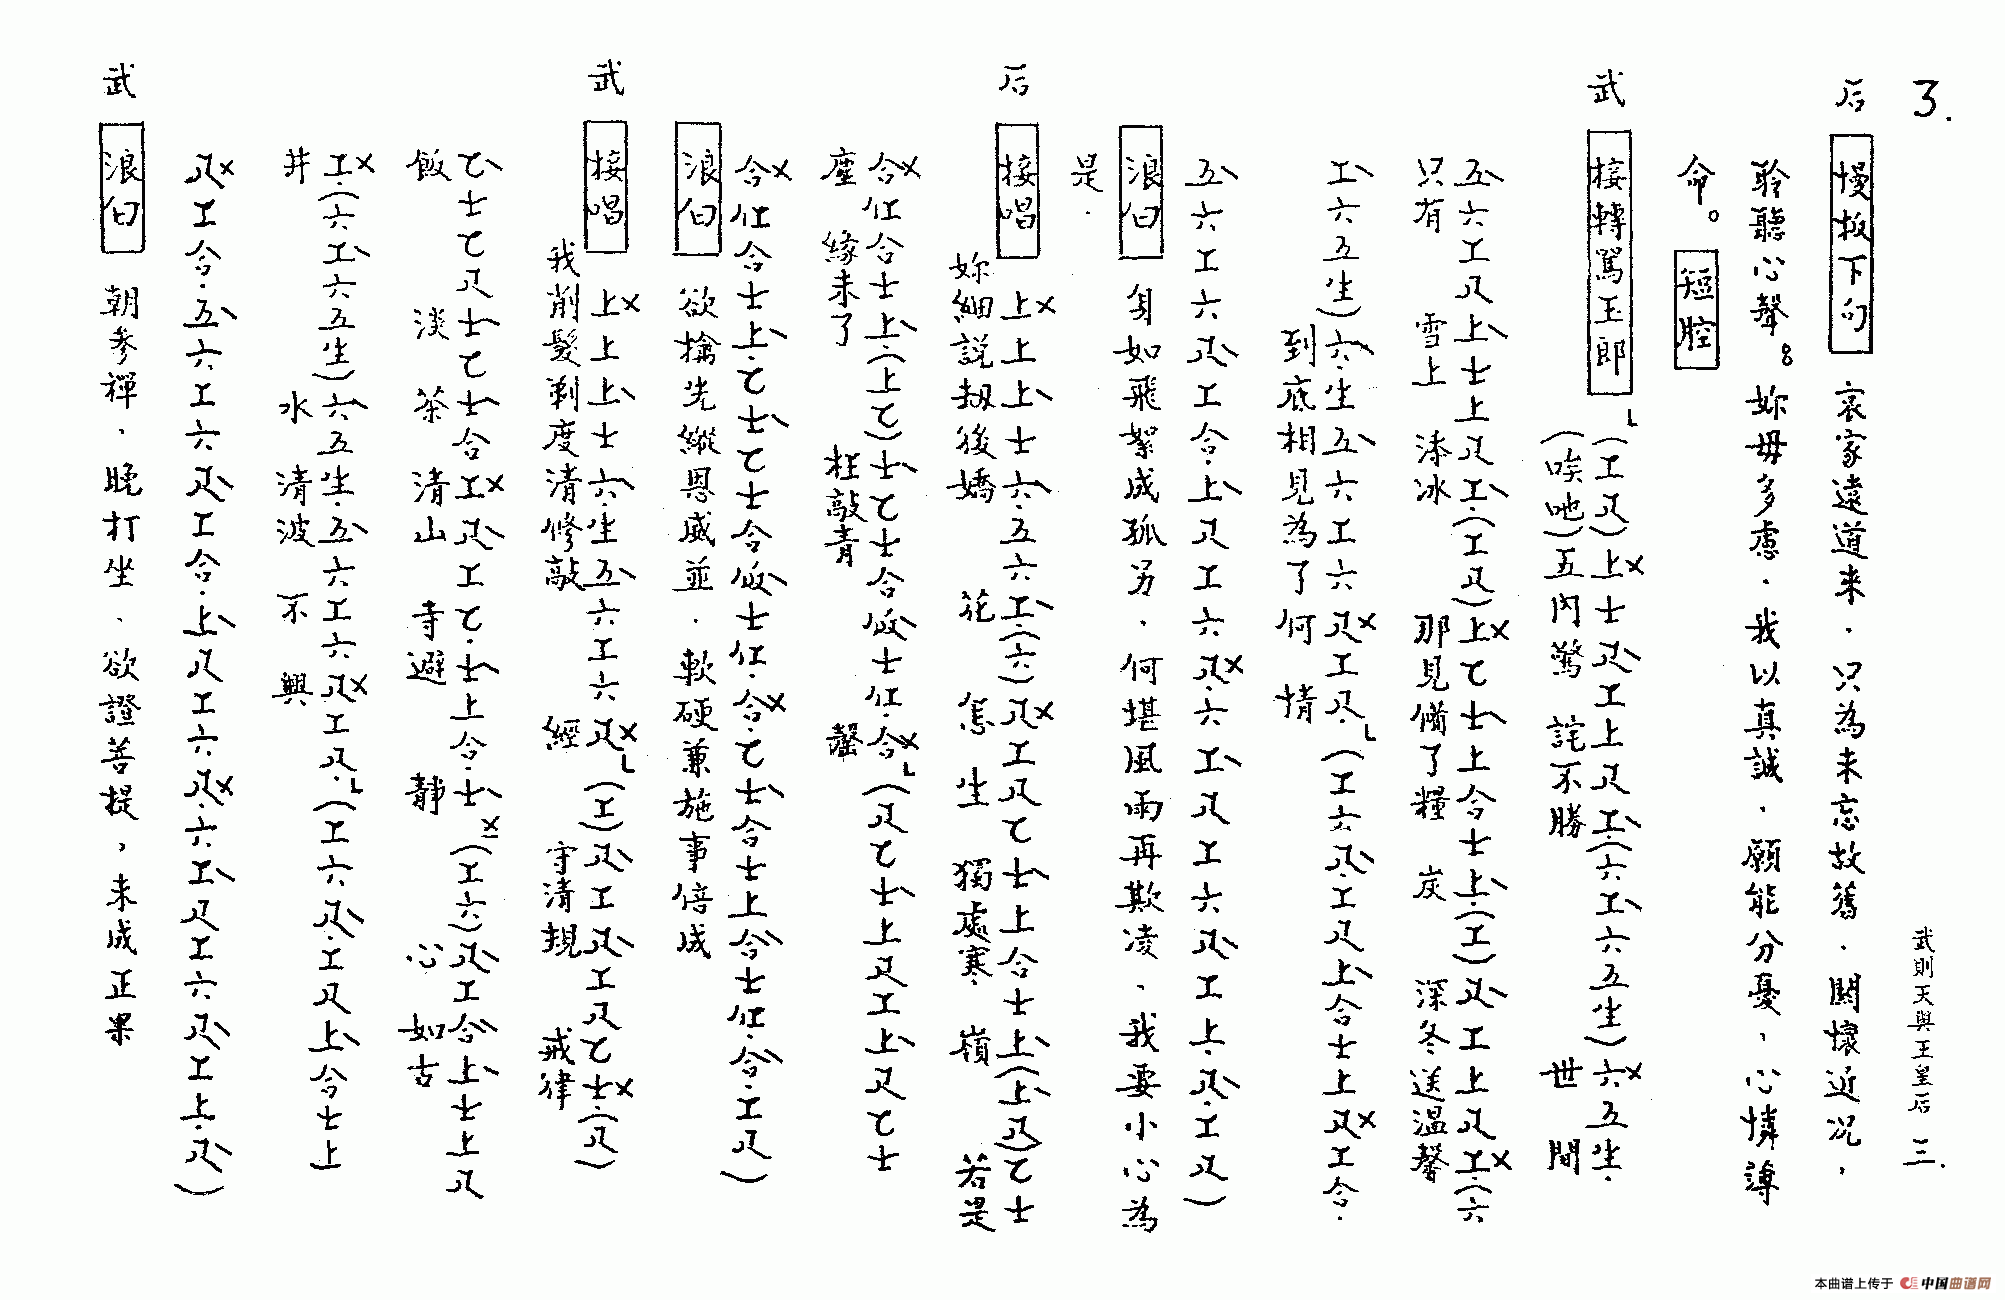 3.
武則天與王皇后 三.
后 慢板下句 哀家遠道来．只為未忘故舊．関懷近况，
聆聽心聲。妳毋多慮．我以真誠．願能分憂，心憐薄
命。短腔
武 接轉罵玉郎 (工尺)上士尺工上尺工(六工六五生)六五生
(唉吔)五内驚 詫不勝 世間
五六工尺上士上尺工(工尺)上乙士上合士上(工)尺工上尺工(六
只有 雪上 添冰 那見備了糧 炭 深冬送温馨
工六五生)六生五六工六尺工尺(工六尺工尺上合士上尺工合
到底相見為了何 情
五六工六尺工合上尺工六尺六工尺工六尺工上尺工尺)
浪白 身如飛絮成孤另．何堪風雨再欺凌．我要小心為
是．
后 接唱 上上上士六五六工(六)尺工尺乙士上合士上(上尺)乙士
妳細説拟後嬌 花 怎生 獨處寒 嶺 若是
合仕合士上(上乙)士乙士合伬士仕合(尺乙士上尺工上尺乙士
塵緣未了 枉敲青 罄
合仕合士上乙士乙士合伬士仕合乙士合士上合士仕合工尺)
浪白 欲擒先縱恩威並．軟硬兼施事倍成
武 接唱 上上上士六生五六工六尺(工)尺工尺工尺乙士(尺)
我削髮剃度清修敲 經 守清規 戒律
乙士乙尺士乙士合工尺工乙士上合士(工六)尺工合上士上尺
飯 淡 茶 清山 寺避 靜 心如古
工(六工六五生)六五生五六工六尺工尺(工六尺工尺上合士上
井 水 清波 不 興
尺工合五六工六尺工合上尺工六尺六工尺工六尺工上尺)
武 浪白 朝参禪．晚打坐．欲證菩提，未成正果
本曲谱上传于 中国曲谱网